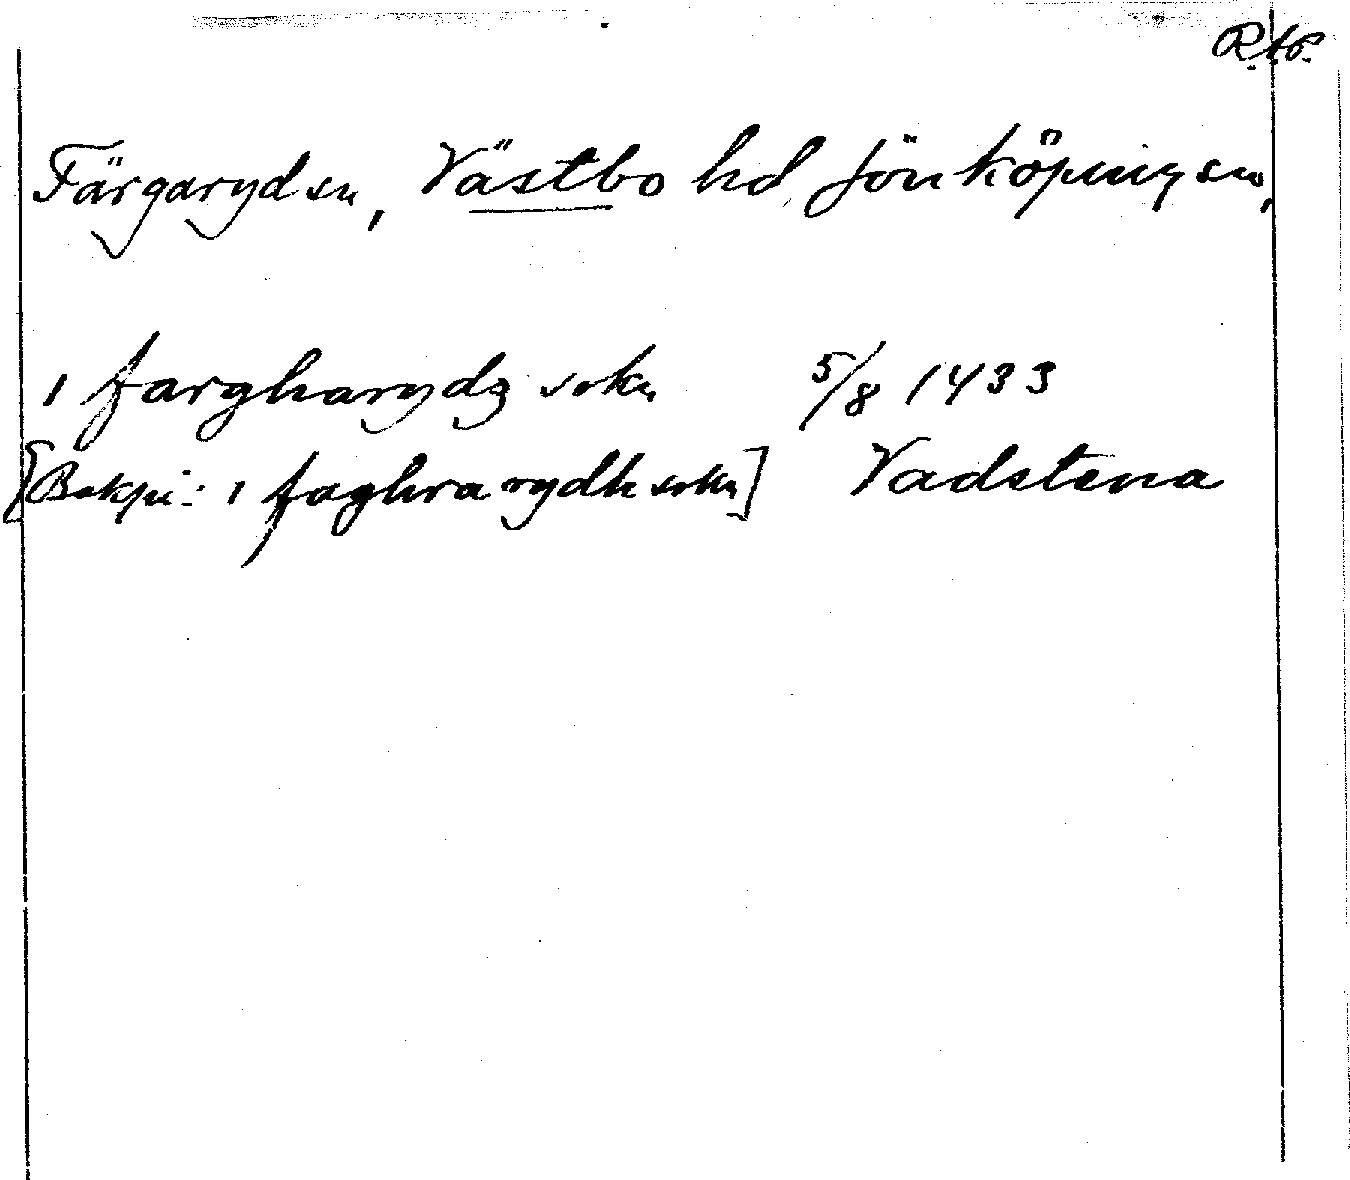 R.A.P.
Färgaryd sn, Västbo hd, Jönköpings ln,
i fargharydz sokn 5/8 1433
[Bakpå: i faghra rydh sokn] Vadstena